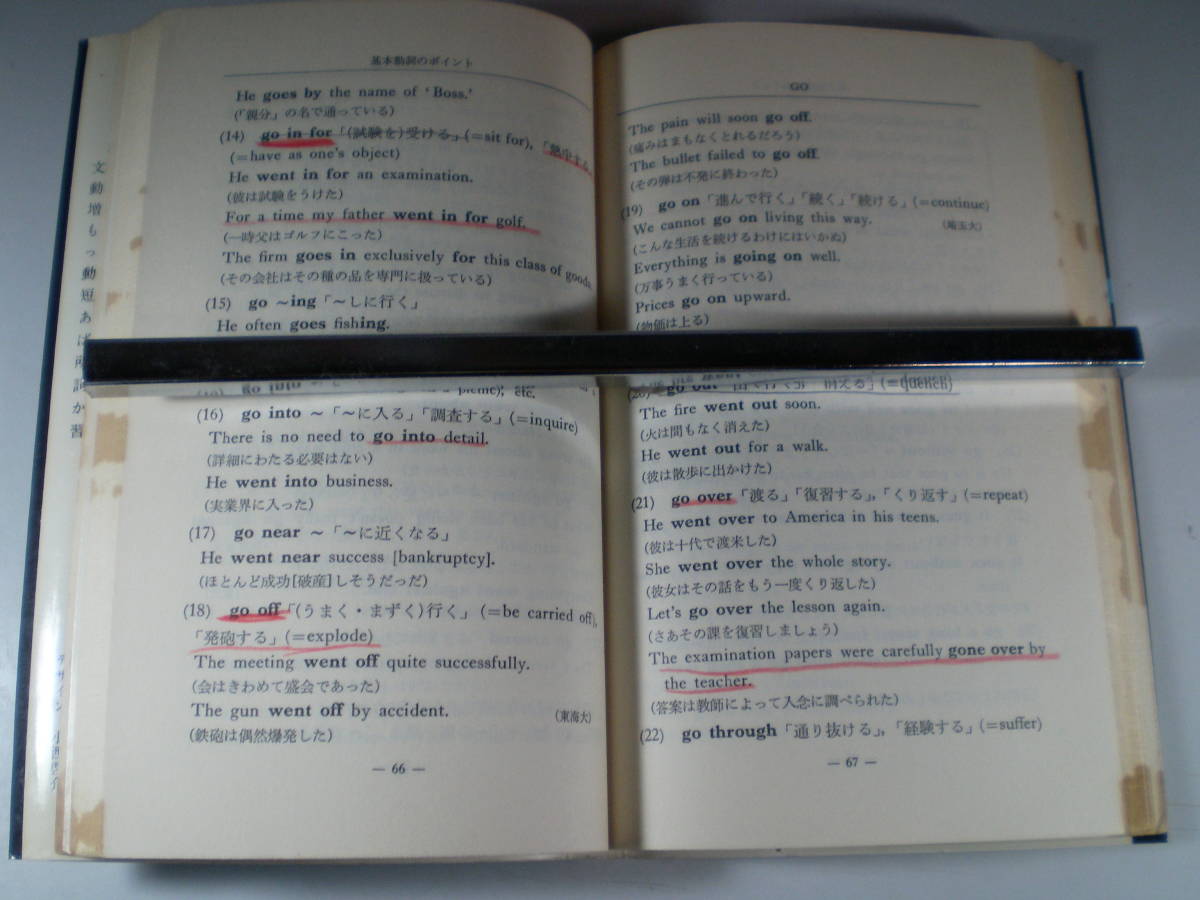 基本動詞のポイント
He goes by the name of 'Boss.'
(「親分」の名で通っている)
(14) go in for「(試験を)受ける」(=sit for),「熱中する」
(=have as one's object)
He went in for an examination.
(彼は試験をうけた)
For a time my father went in for golf.
(一時父はゴルフにこった)
The firm goes in exclusively for this class of goods.
(その会社はその種の品を専門に扱っている)
(15) go ~ing「~しに行く」
He often goes fishing.
go into
a picnic), etc.
(16) go into ~「~に入る」「調査する」(=inquire)
There is no need to go into detail.
(詳細にわたる必要はない)
He went into business.
(実業界に入った)
(17) go near ~「~に近くなる」
He went near success [bankruptcy].
(ほとんど成功[破産]しそうだっだ)
(18) go off「(うまく・まずく)行く」(=be carried off),
「発砲する」(=explode)
The meeting went off quite successfully.
(会はきわめて盛会であった)
The gun went off by accident. (東海大)
(鉄砲は偶然爆発した)
— 66 —
GO
The pain will soon go off.
(痛みはまもなくとれるだろう)
The bullet failed to go off.
(その弾は不発に終わった)
(19) go on「進んで行く」「続く」「続ける」(=continue)
We cannot go on living this way. (埼玉大)
(こんな生活を続けるわけにはいかぬ)
Everything is going on well.
(万事うまく行っている)
Prices go on upward.
(物価は上る)
(20) go out
消える」(=
The fire went out soon.
(火は間もなく消えた)
He went out for a walk.
(彼は散歩に出かけた)
(21) go over「渡る」「復習する」,「くり返す」(=repeat)
He went over to America in his teens.
(彼は十代で渡米した)
She went over the whole story.
(彼女はその話をもう一度くり返した)
Let's go over the lesson again.
(さあその課を復習しましょう)
The examination papers were carefully gone over by
the teacher.
(答案は教師によって入念に調べられた)
(22) go through「通り抜ける」,「経験する」(=suffer)
— 67 —